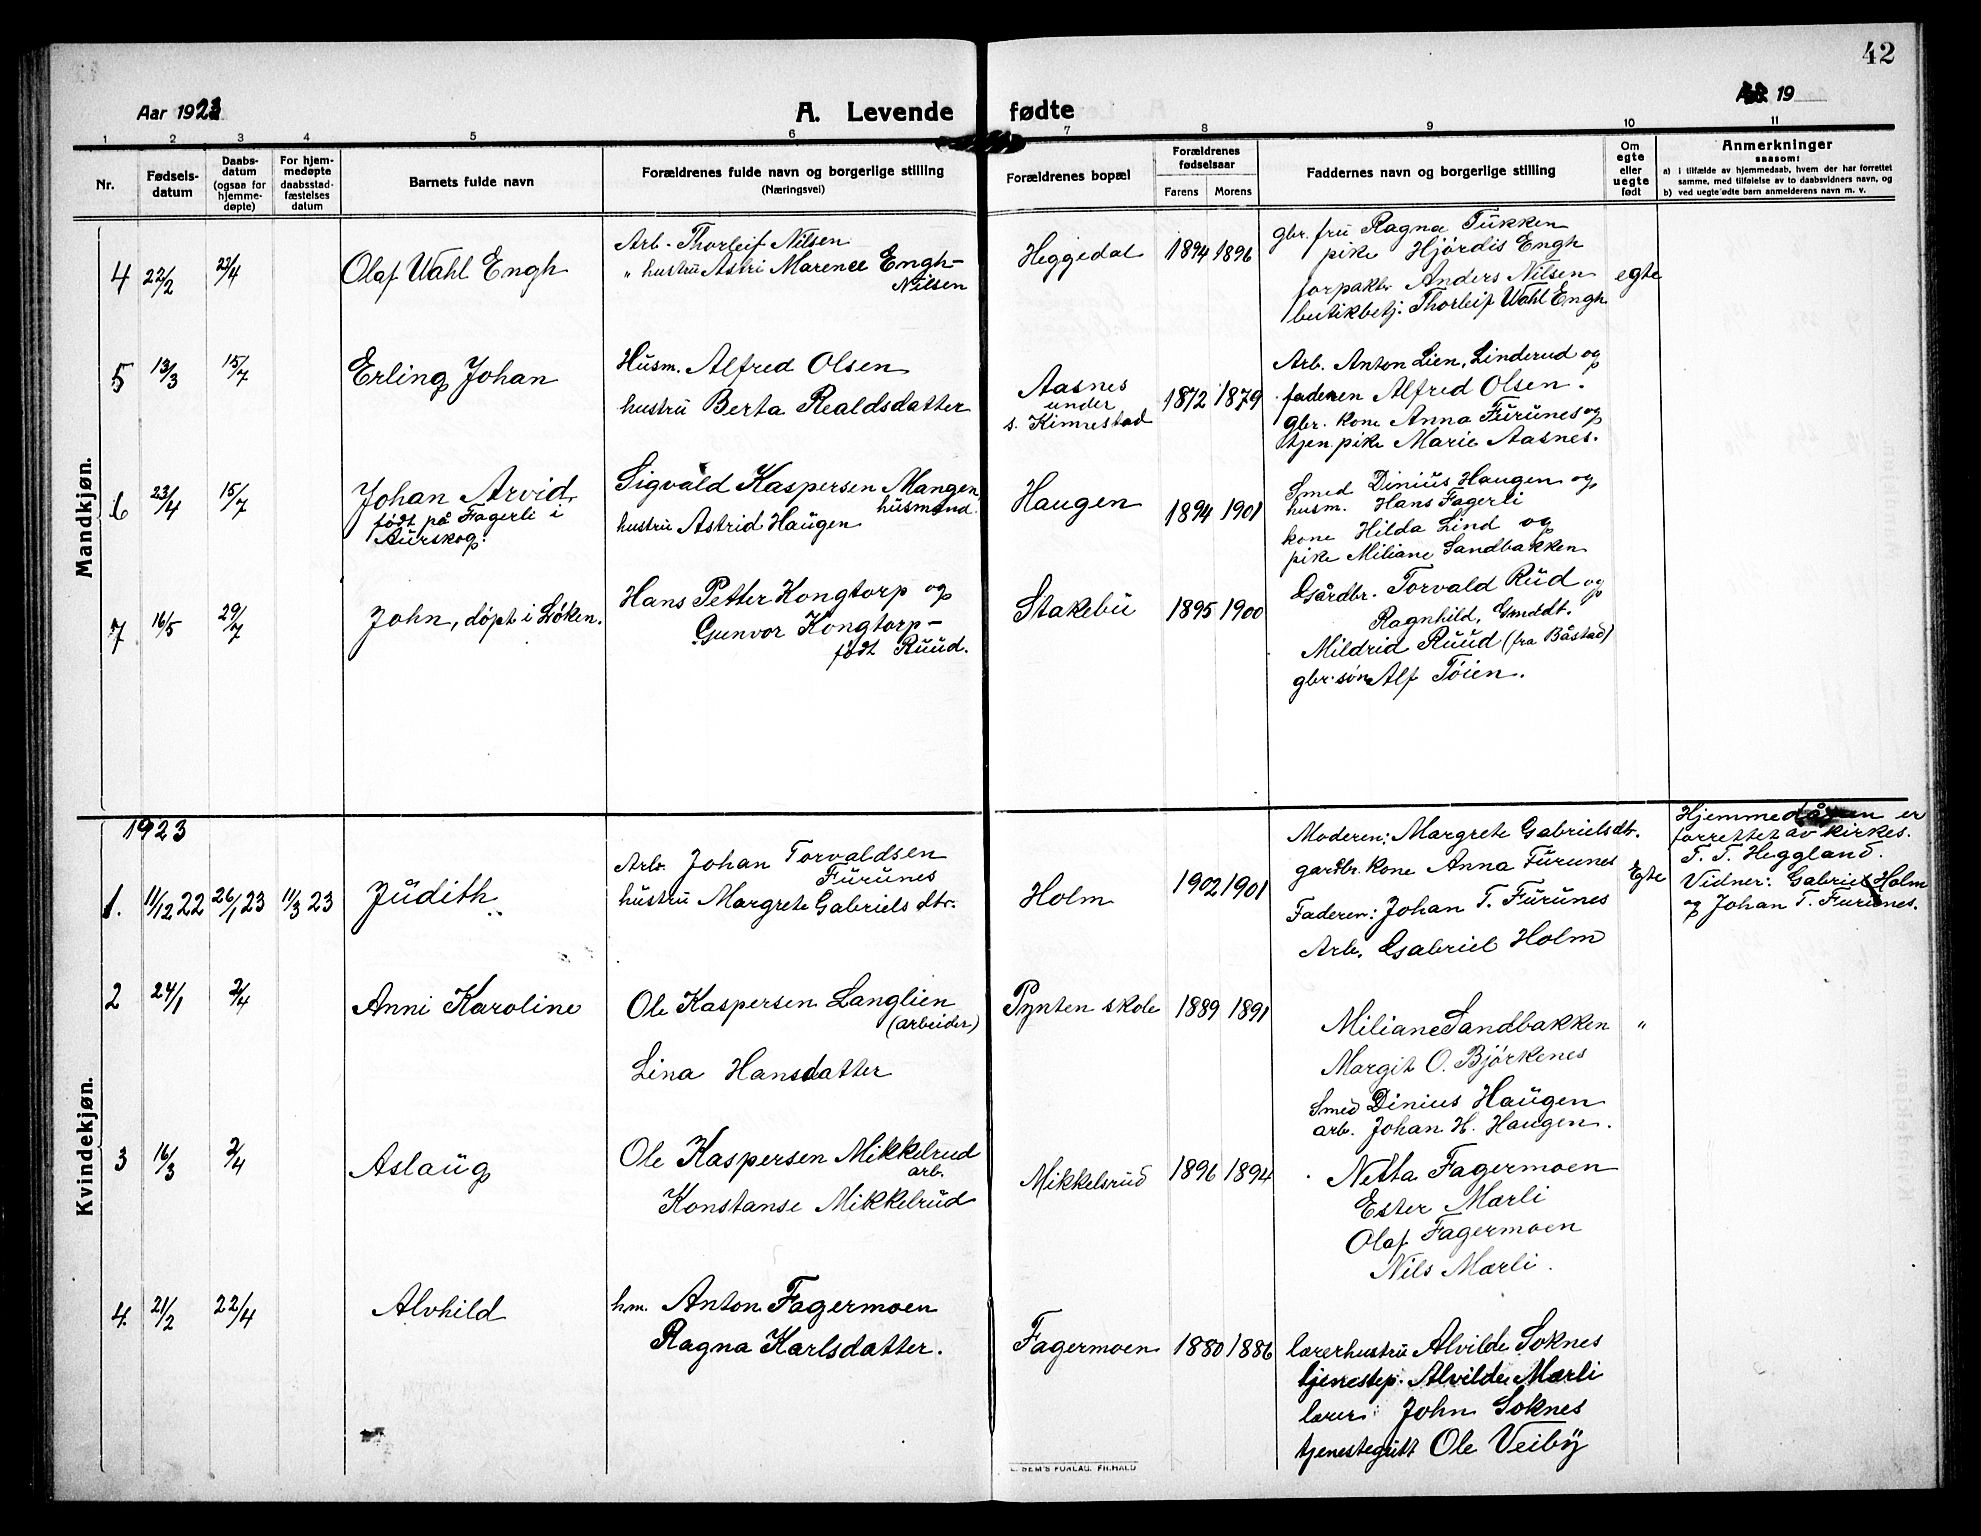 42
Aar 1923
A. Levende fødte
19
1 2 3 4 5 6 7 8 9 10 11
Nr.
Fødsels-
datum
Daabs-
datum
(ogsaa for
hjemme-
døpte)
For hjem-
medøpte
daabsstad-
fæstelses
datum
Barnets fulde navn
Forældrenes fulde navn og borgerlige stilling
(Næringsvei)
Forældrenes bopæl
Forældrenes
fødselsaar
Farens Morens
Faddernes navn og borgerlige stilling
Om
egte
eller
uegte
født
Anmerkninger
saasom:
a) i tilfælde av hjemmedaab, hvem der har forrettet
samme, med tilføielse av to daabsvidners navn, og
b) ved uegte fødte barn anmelderens navn m. v.
Mandkjøn.
4 22/2 22/4
Olaf Wahl Engh
Arb. Thorleif Nilsen
" hustru Astri Marence Engh-
Nilsen
Heggedal 1894 1896
gbr. fru Ragna Tukken
pike Hjørdis Engh
forpakter Anders Nilsen
butikbetj. Thorleif Wahl Engh
egte
5 13/3 15/7
Erling Johan
Husm. Alfred Olsen
hustru Berta Realdsdatter
Aasnes
under
s. Kinnestad
1872 1879
Arb. Anton Lien, Linderud og
faderen Alfred Olsen.
gbr. kone Anna Furunes og
tjen.pike Marie Aasnes.
6 23/4 15/7
Johan Arvid,
født på Fagerli i
Aurskog.
Sigvald Kaspersen Mangen,
husmand.
hustru Astrid Haugen
Haugen 1894 1901
Smed Dinius Haugen og
husm. Hans Fagerli
kone Hilda Lind og
pike Miliane Sandbakken
7 16/5 29/7
John, døpt i Løken.
Hans Petter Kongtorp og
Gunvor Kongtorp-
født Ruud.
Stakebu 1895 1900
Gårdbr. Torvald Rud og
Ragnhild, Gmddt.
Mildrid Ruud (fra Båstad)
gbr.søn Alf Tøien.
Kvindekjøn.
1923
1. 11/12 22 26/1 23 11/3 23
Judith
Arb. Johan Torvaldsen
Furunes
hustru Margrete Gabriels dtr.
Holm 1902 1901
Moderen: Margrete Gabrielsdtr.
gardbr. kone Anna Furunes
Faderen: Johan T. Furunes
Arb. Gabriel Holm
Egte
Hjemmedåpen er
forrettet av kirkes.
T. T. Heggland.
Vidner: Gabriel Holm
og Johan T. Furunes.
2 24/1 2/4
Anni Karoline
Ole Kaspersen Langlien
(arbeider)
Lina Hansdatter
Pynten skole 1889 1891
Miliane Sandbakken
Margit O. Bjørkenes
Smed Dinius Haugen
arb. Johan H. Haugen.
"
3 16/3 2/4
Aslaug
Ole Kaspersen Mikkelrud
arb.
Konstanse Mikkelrud
Mikkelsrud 1896 1894
Netta Fagermoen
Ester Mærli
Olaf Fagermoen
Nils Mærli.
4 21/2 22/4
Alvhild
hm. Anton Fagermoen
Ragna Karlsdatter.
Fagermoen 1880 1886
lærerhustru Alvilde Soknes
tjenestep. Alvilde Mærli
lærer John Soknes
tjenestegutt Ole Veiby
E. SEM'S FORLAG, FR.HALD